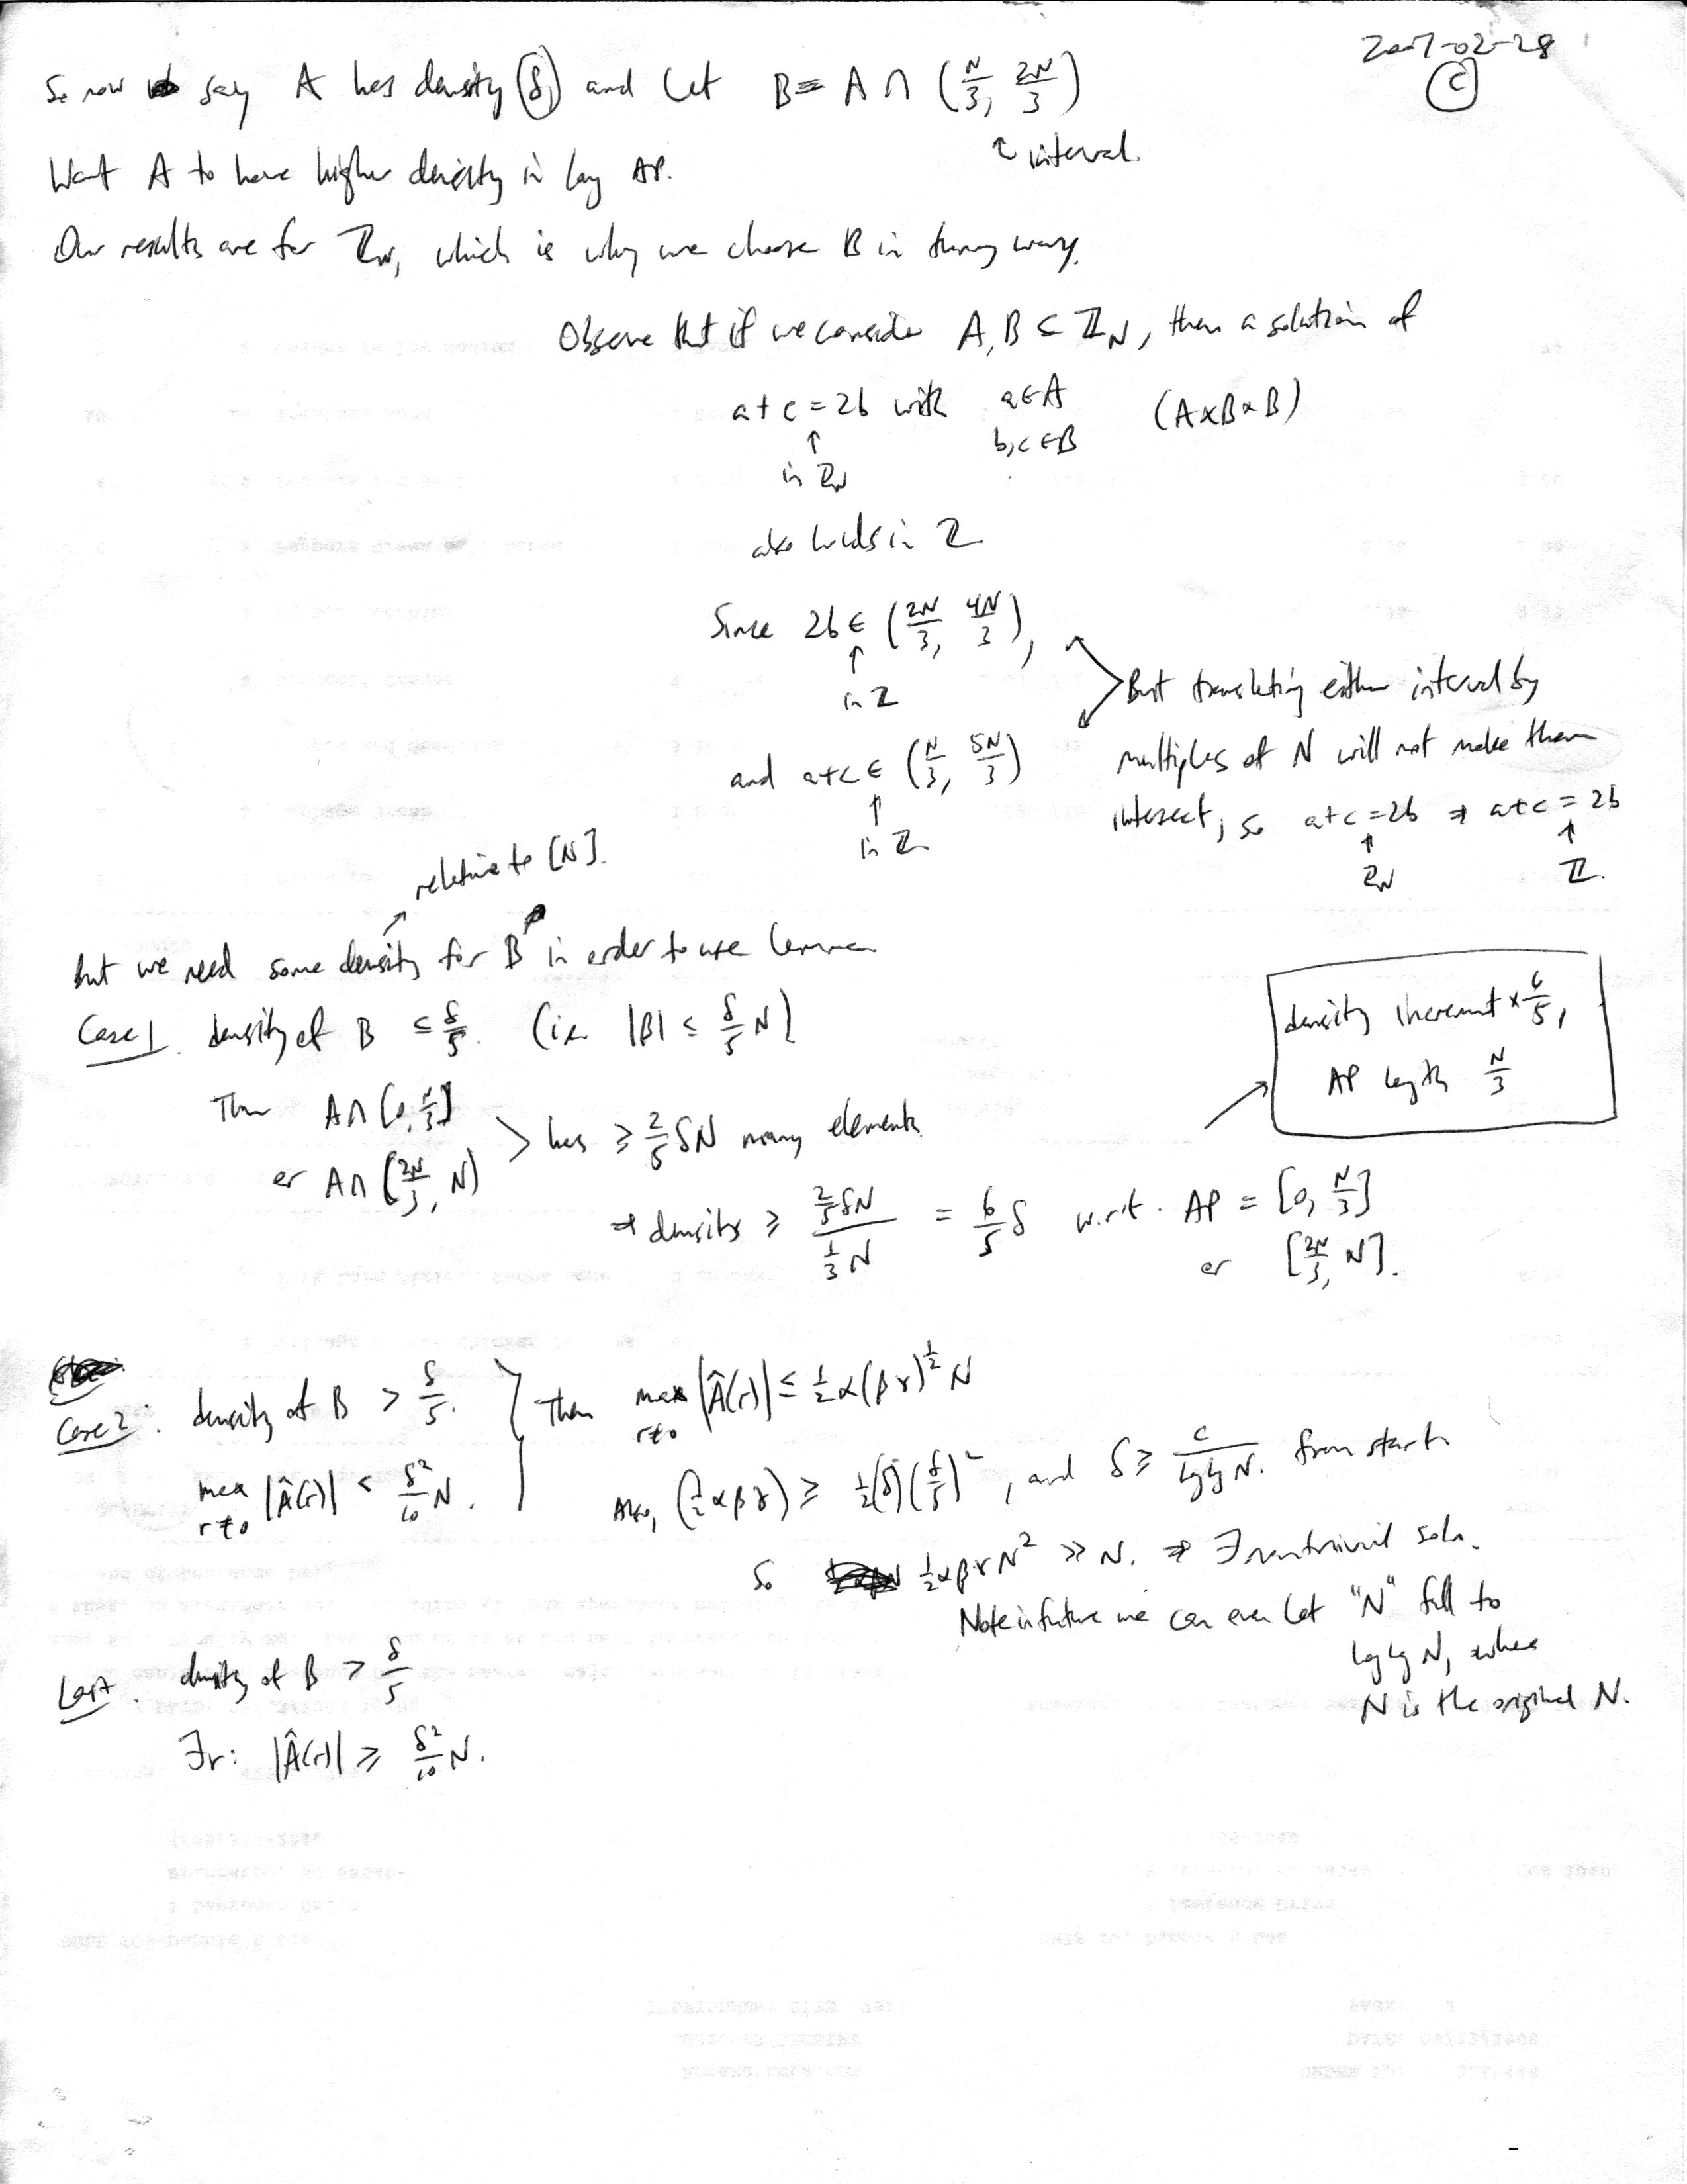 2007-02-28
C
So now say A has density δ, and let B = A ∩ (N/3, 2N/3)
↑ interval.
Want A to have higher density in long AP.
Our results are for ℤ_N, which is why we choose B in funny way.
Observe that if we consider A, B ⊂ ℤ_N, then a solution of
a + c = 2b with a ∈ A (A×B×B)
↑ b, c ∈ B
in ℤ_N
also holds in ℤ
Since 2b ∈ (2N/3, 4N/3),
↑
in ℤ
and a+c ∈ (N/3, 5N/3)
↑
in ℤ
But translating either interval by
multiples of N will not make them
intersect, so a+c = 2b ⇒ a+c = 2b
↑ ↑
ℤ_N ℤ.
relative to [N].
but we need some density for B in order to use Lemma
Case 1. density of B ≤ δ/5. (i.e. |B| ≤ δ/5 N)
density increment × 6/5,
AP length N/3
Then A∩[0, N/3]
or A∩(2N/3, N) > has ≥ 2/5 δN many elements
⇒ density ≥ (2/5 δN)/(1/3 N) = 6/5 δ w.r.t. AP = [0, N/3]
or [2N/3, N].
Case 2: density of B > δ/5. } Then max_{r≠0} |Â(r)| ≤ 1/2 α(βγ)^{1/2} N
max_{r≠0} |Â(r)| < δ²/10 N.
Also, (1/2 αβγ) ≥ 1/2(δ)(δ/5)², and δ ≥ c/(lg lg N). from start.
So 1/2 αβγN² >> N. ⇒ ∃ nontrivial soln.
Note in future we can even let "N" fall to
log lg N, where
N is the original N.
Last: density of B > δ/5
∃r: |Â(r)| ≥ δ²/10 N.